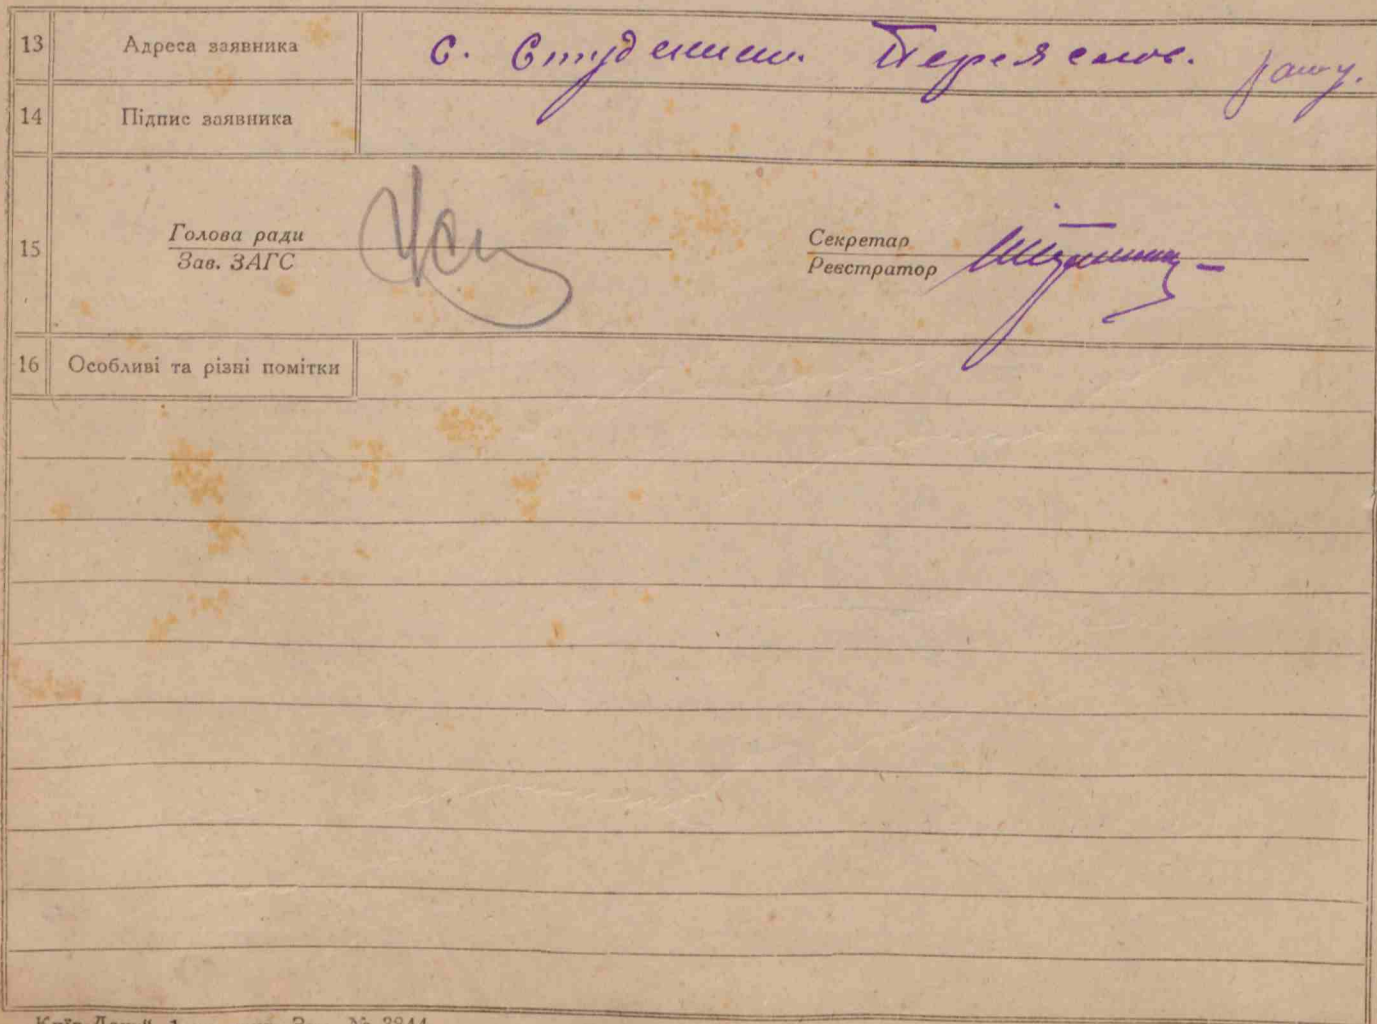 13 Адреса заявника с. Студеники Переяслов. району.
14 Підпис заявника
15 Голова ради
Зав. ЗАГС
Секретар
Реєстратор
16 Особливі та різні помітки
№ 3844